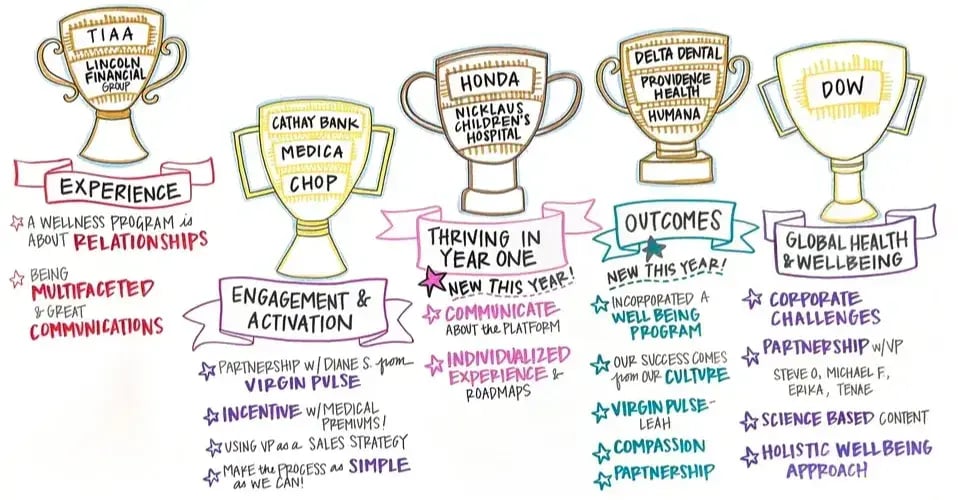 TIAA
LINCOLN
FINANCIAL
GROUP
EXPERIENCE
A WELLNESS PROGRAM is
ABOUT RELATIONSHIPS
BEING
MULTIFACETED
& GREAT
COMMUNICATIONS
CATHAY BANK
MEDICA
CHOP
ENGAGEMENT &
ACTIVATION
PARTNERSHIP W/DIANE S. from
VIRGIN PULSE
INCENTIVE W/MEDICAL
PREMIUMS!
USING VP as a SALES STRATEGY
MAKE the PROCESS as SIMPLE
as WE CAN!
HONDA
NICKLAUS
CHILDREN'S
HOSPITAL
THRIVING IN
YEAR ONE
NEW THIS YEAR!
COMMUNICATE
ABOUT the PLATFORM
INDIVIDUALIZED
EXPERIENCE &
ROADMAPS
DELTA DENTAL
PROVIDENCE
HEALTH
HUMANA
OUTCOMES
NEW THIS YEAR!
INCORPORATED A
WELL BEING
PROGRAM
OUR SUCCESS COMES
from OUR CULTURE
VIRGIN PULSE-
LEAH
COMPASSION
PARTNERSHIP
DOW
GLOBAL HEALTH
& WELLBEING
CORPORATE
CHALLENGES
PARTNERSHIP W/VP
STEVE O, MICHAEL F,
ERIKA, TENAE
SCIENCE BASED CONTENT
HOLISTIC WELLBEING
APPROACH